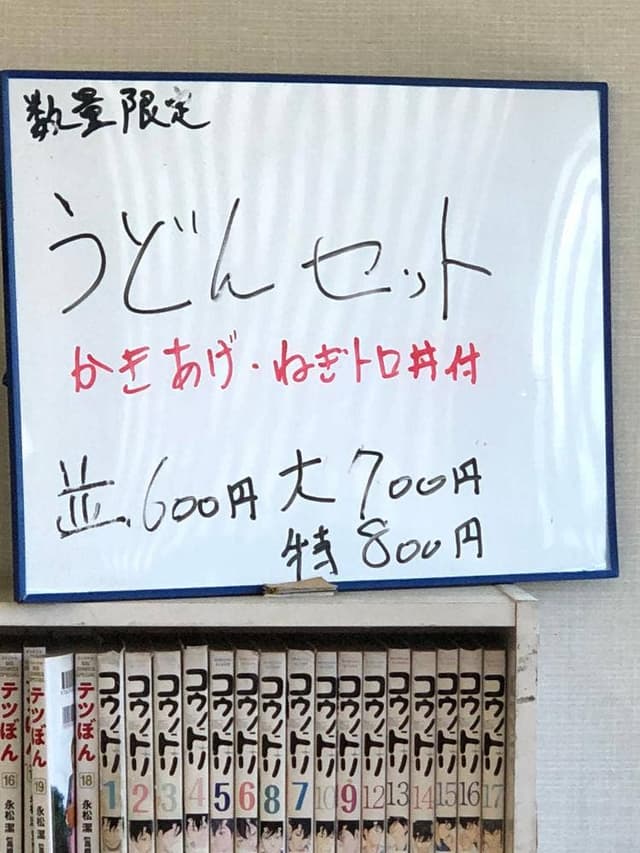 数量限定
うどんセット
かきあげ・ねぎトロ丼付
並 600円 大 700円
特 800円
テツぼん 16 永松潔
テツぼん 19 永松潔
テツぼん 18 永松潔
コウノトリ 1
コウノトリ 2
コウノトリ 3
コウノトリ 4
コウノトリ 5
コウノトリ 6
コウノトリ 8
コウノトリ 7
コウノトリ 10
コウノトリ 9
コウノトリ 12
コウノトリ 13
コウノトリ 14
コウノトリ 15
コウノトリ 16
コウノトリ 17